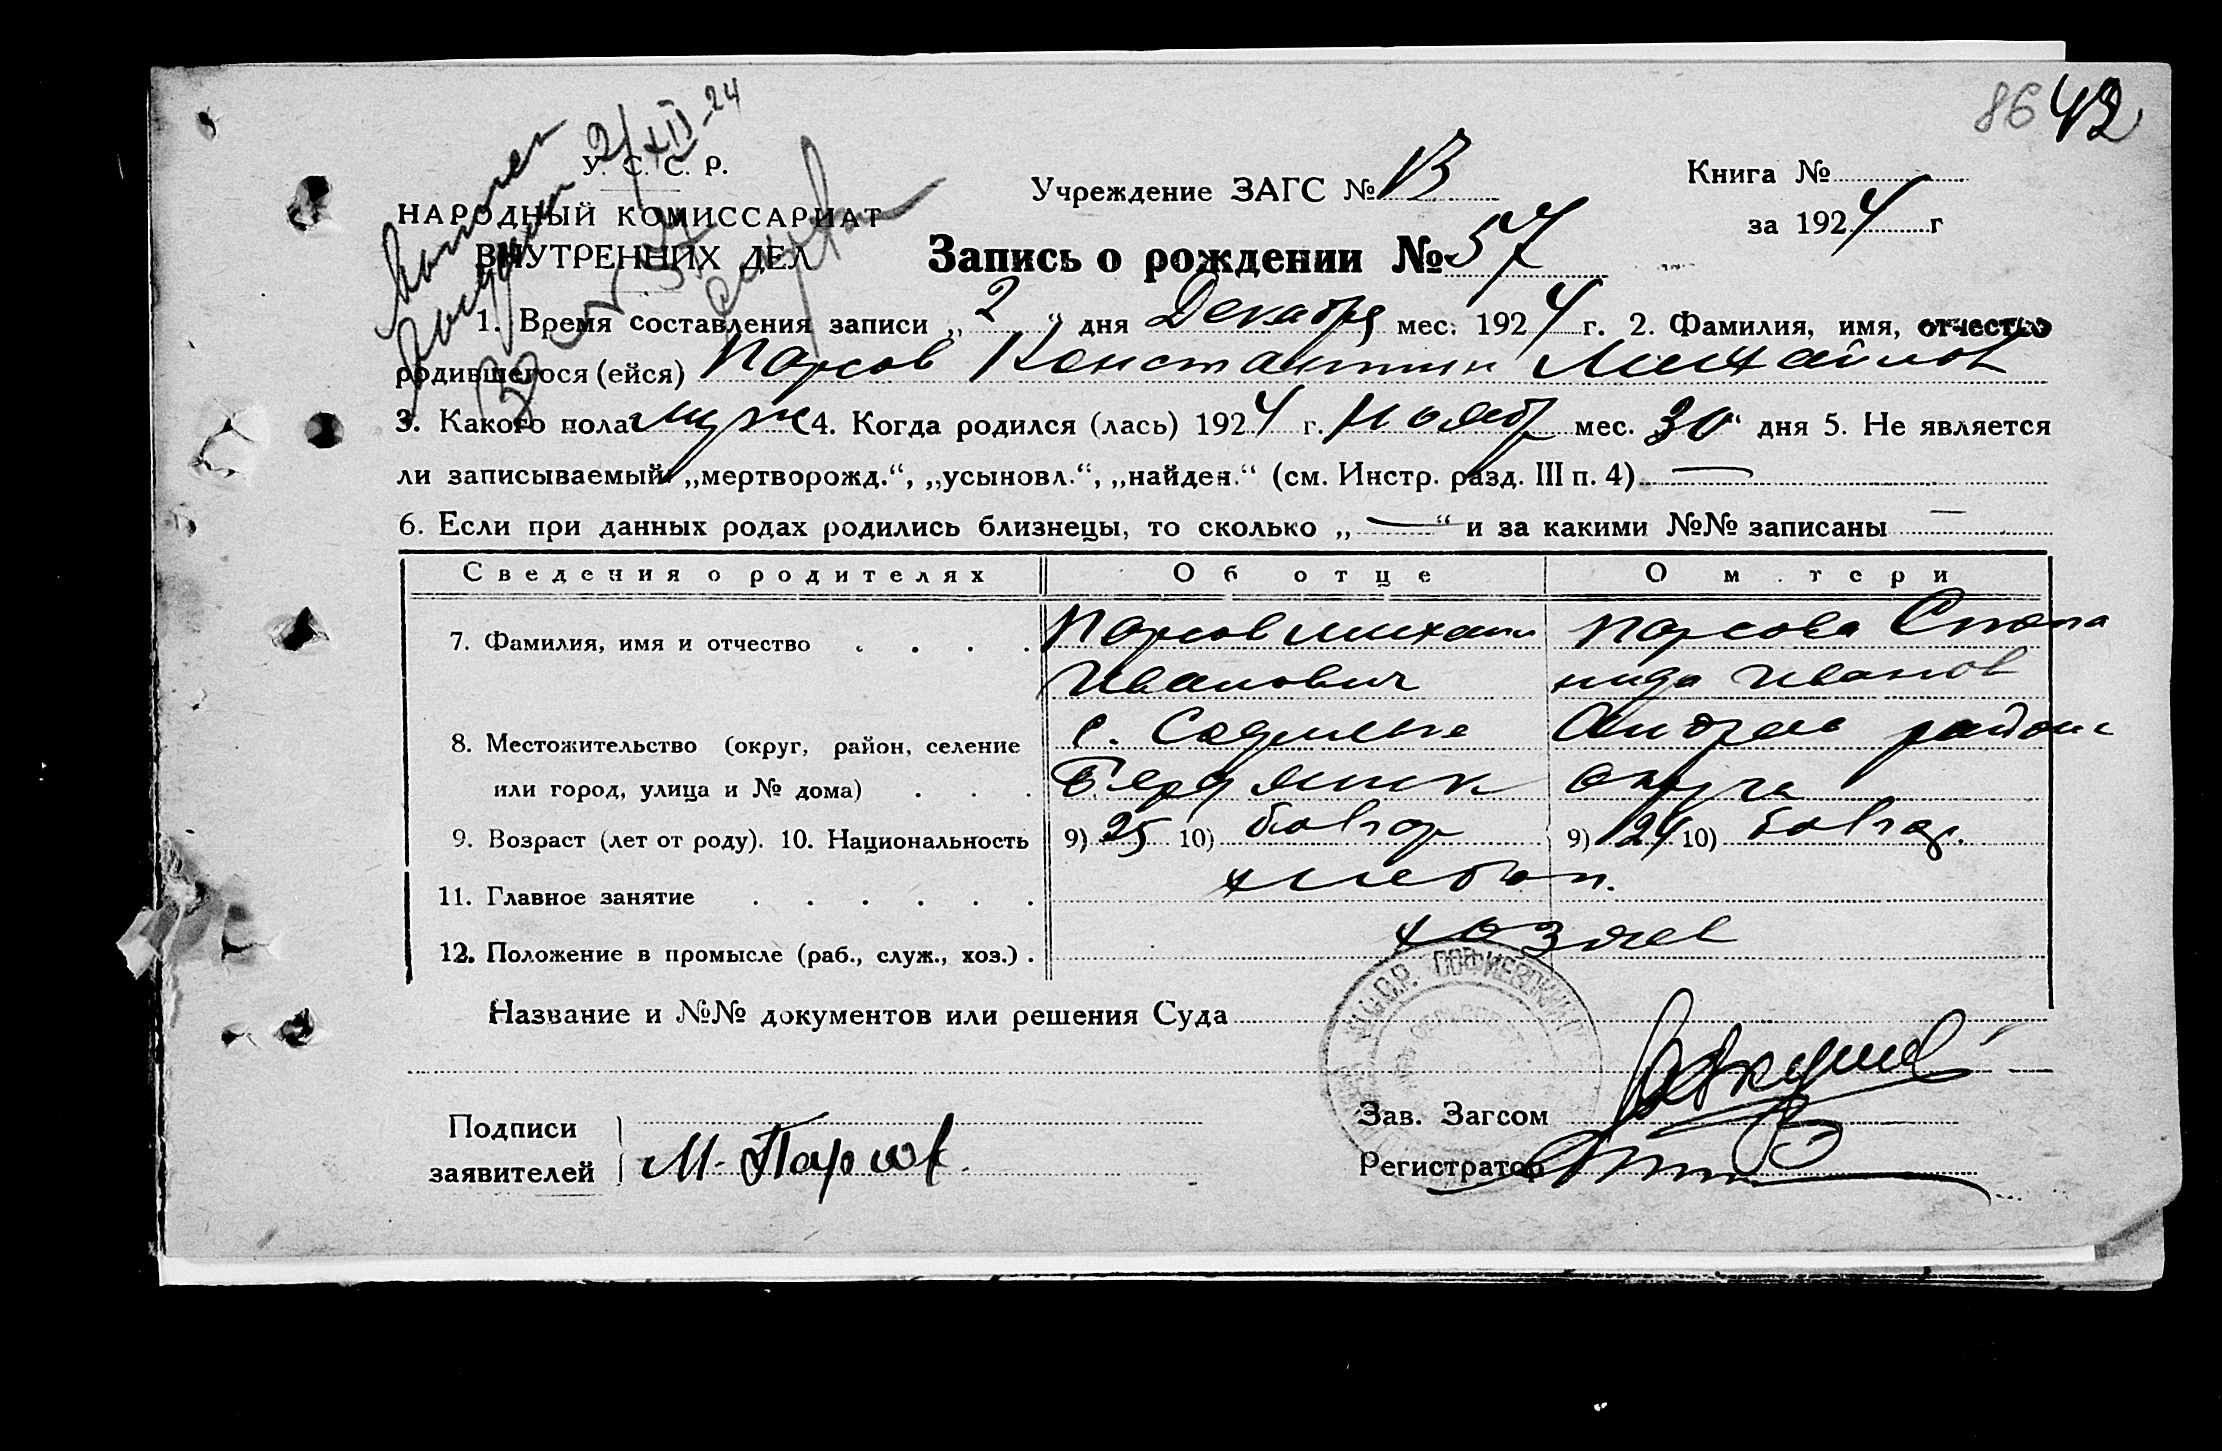 86 42
2/XII-24
У. С. С. Р.
НАРОДНЫЙ КОМИССАРИАТ
ВНУТРЕННИХ ДЕЛ
Учреждение ЗАГС №
Книга №
за 1924 г
Запись о рождении № 57
1. Время составления записи „ 2 “ дня Декабря мес. 1924 г. 2. Фамилия, имя, отчество
родившегося (ейся) Парсов Константин Михайлов
3. Какого пола муж 4. Когда родился (лась) 1924 г. Ноябр мес. 30 “ дня 5. Не является
ли записываемый „мертворожд.“, „усыновл.“, „найден.“ (см. Инстр. разд. III п. 4) —
6. Если при данных родах родились близнецы, то сколько „ — “ и за какими №№ записаны —
Сведения о родителях Об отце О м тери
7. Фамилия, имя и отчество . . . . Парсов Михаил Парсова Степа
Иванович нида Иванов
8. Местожительство (округ, район, селение с. Андреев района
или город, улица и № дома) . . . Бердянск округа
9. Возраст (лет от роду). 10. Национальность 9) 25 10) болгар 9) 24 10) болгар.
11. Главное занятие . . . . . . хлебоп.
12. Положение в промысле (раб., служ., хоз.) . хозяев
Название и №№ документов или решения Суда
Подписи
заявителей М. Парсов
Зав. Загсом
Регистратор